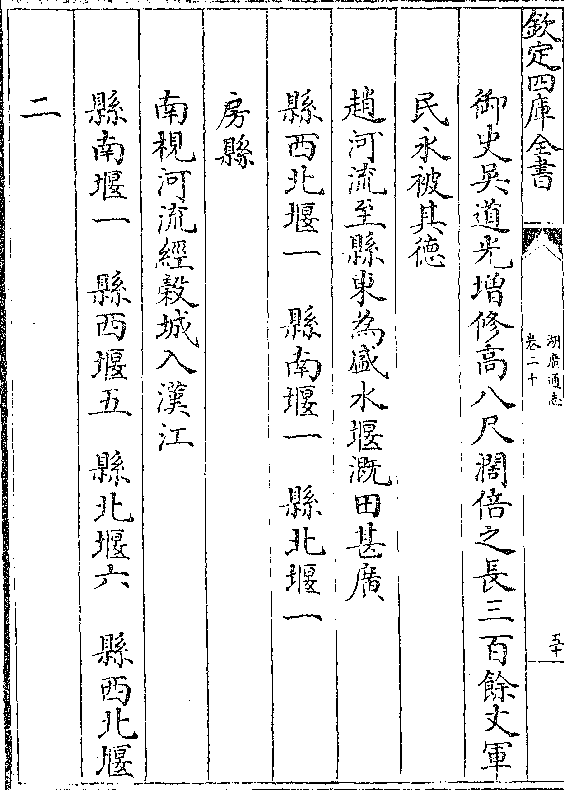 欽定四庫全書
湖廣通志
卷二十
五十
御史吳道光增修高八尺濶倍之長三百餘丈軍
民永被其德
趙河流至縣東為盛水堰溉田甚廣
縣西北堰一　縣南堰一　縣北堰一
房縣
南視河流經穀城入漢江
縣南堰一　縣西堰五　縣北堰六　縣西北堰
二